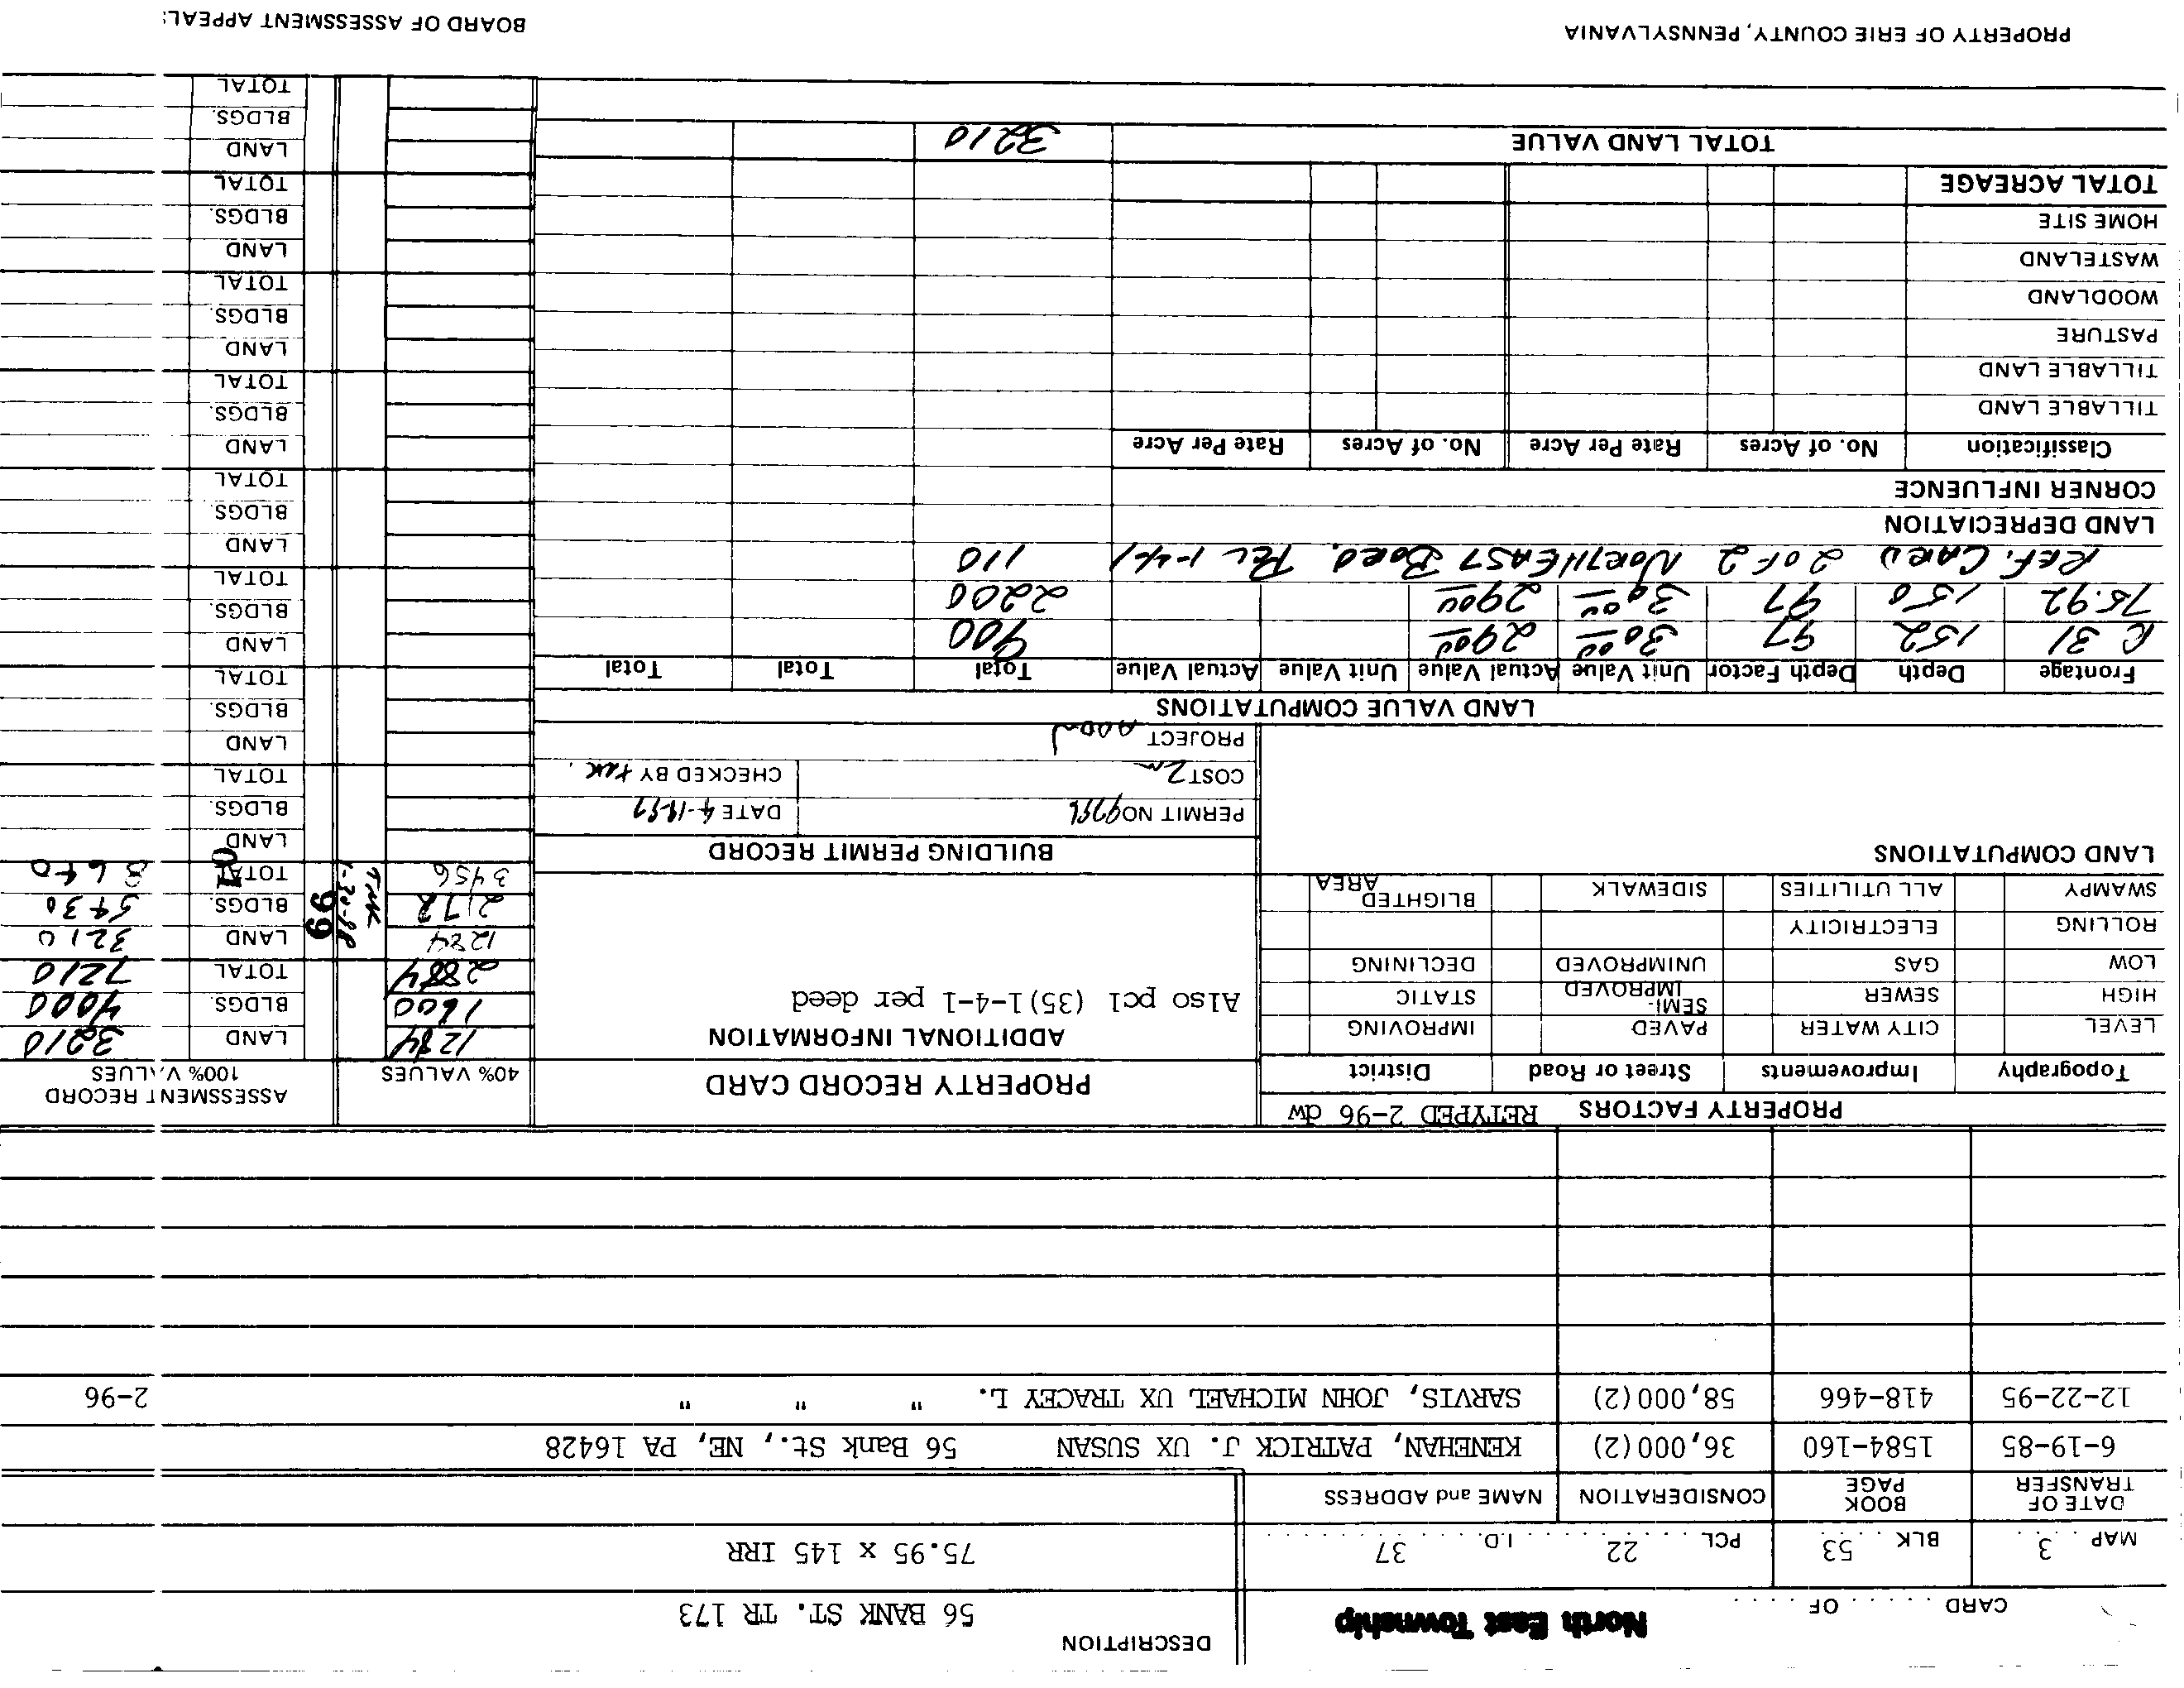 North East Township
DESCRIPTION
56 BANK ST. TR 173
CARD . . . . . . OF . . . .
MAP 3 BLK 53 PCL 22 I.D. 37
75.95 x 145 IRR
DATE OF TRANSFER BOOK PAGE CONSIDERATION NAME and ADDRESS
6-19-85 1584-160 36,000(2) KENEHAN, PATRICK J. UX SUSAN 56 Bank St., NE, PA 16428
12-22-95 418-466 58,000(2) SARVIS, JOHN MICHAEL UX TRACEY L. " " " 2-96
PROPERTY FACTORS RETYPED 2-96 dw
Topography Improvements Street or Road District
LEVEL CITY WATER PAVED IMPROVING
HIGH SEWER SEMI-IMPROVED STATIC
LOW GAS UNIMPROVED DECLINING
ROLLING ELECTRICITY
SWAMPY ALL UTILITIES SIDEWALK BLIGHTED AREA
LAND COMPUTATIONS
PROPERTY RECORD CARD
ADDITIONAL INFORMATION
Also pcl (35)1-4-1 per deed
BUILDING PERMIT RECORD
PERMIT NO DATE
COST 2m CHECKED BY
PROJECT
40% VALUES ASSESSMENT RECORD 100% VALUES
1284 LAND 3210
1600 BLDGS. 4000
2884 TOTAL 7210
1284 LAND 3210
2172 99 BLDGS. 5430
3456 TOTAL 01 8640
LAND
BLDGS.
TOTAL
LAND
BLDGS.
TOTAL
LAND
BLDGS.
TOTAL
LAND
BLDGS.
TOTAL
LAND
BLDGS.
TOTAL
LAND
BLDGS.
TOTAL
LAND
BLDGS.
TOTAL
LAND
BLDGS.
TOTAL
LAND VALUE COMPUTATIONS
Frontage Depth Depth Factor Unit Value Actual Value Unit Value Actual Value Total Total Total
R 31 152 97 30 00 29 00 900
75.92 150 97 30 00 29 00 2200
REF. CARD 2 OF 2 NORTHEAST BORO. PCL 1-4-1 110
LAND DEPRECIATION
CORNER INFLUENCE
Classification No. of Acres Rate Per Acre No. of Acres Rate Per Acre
TILLABLE LAND
TILLABLE LAND
PASTURE
WOODLAND
WASTELAND
HOME SITE
TOTAL ACREAGE
TOTAL LAND VALUE 3210
PROPERTY OF ERIE COUNTY, PENNSYLVANIA BOARD OF ASSESSMENT APPEAL